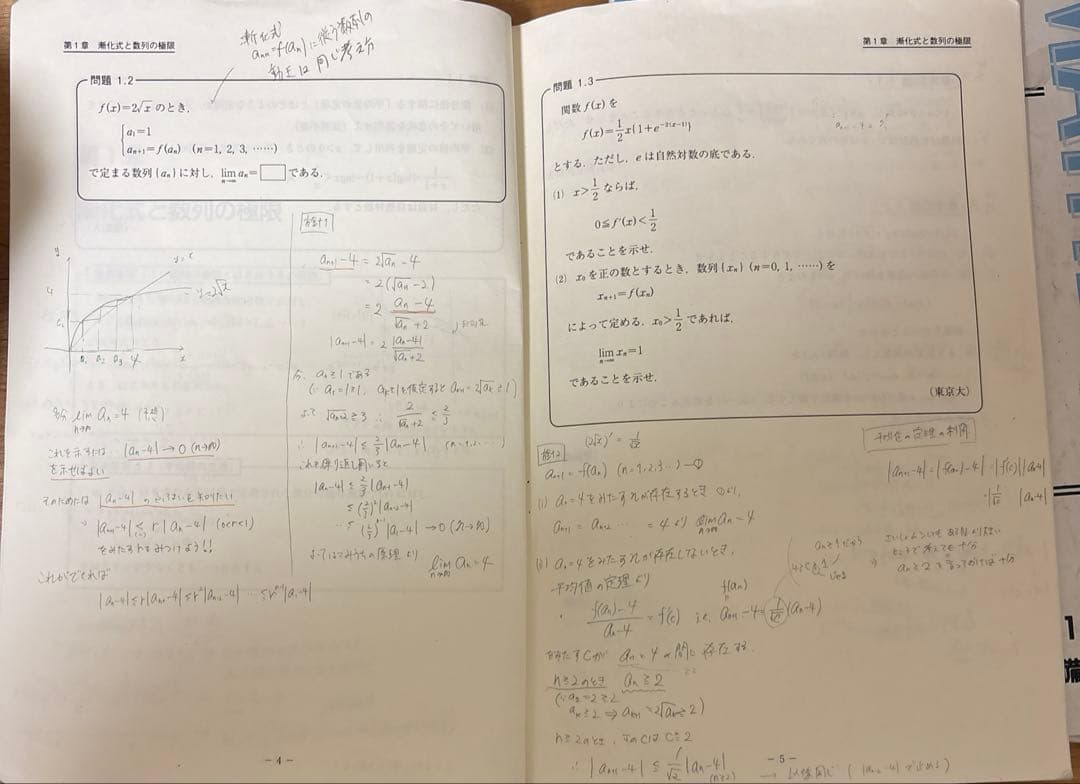 第1章 漸化式と数列の極限
漸化式
a_{n+1}=f(a_n)に従う数列の
動きは同じ考え方
問題 1.2
f(x)=2√x のとき,
{a₁=1
a_{n+1}=f(a_n) (n=1, 2, 3, ……)
で定まる数列{a_n}に対し, lim_{n→∞} a_n=□である.
y
y=x
4
y=2√x
a₁ a₂ a₃ 4 x
lim_{n→∞} a_n=4 (予想)
これを示すには |a_n-4|→0 (n→∞)
を示せばよい
そのためには |a_n-4|
|a_{n+1}-4|≦r|a_n-4| (0<r<1)
をみたすrをみつけよう!!
これができれば
|a_n-4|≦r|a_{n-1}-4|≦r²|a_{n-2}-4| …≦r^{n-1}|a₁-4|
a_{n+1}-4=2√a_n-4
=2(√a_n-2)
=2 (a_n-4)/(√a_n+2)
|a_{n+1}-4|=2 |a_n-4|/(√a_n+2)
a_n≧1である
(∵a₁=1≧1, a_k≧1を仮定するとa_{k+1}=2√a_k≧1)
よって √a_n+2≧3 ∴ 2/(√a_n+2)≦2/3
∴ |a_{n+1}-4|≦2/3|a_n-4| (n=1,2,…)
これを繰り返し用いると
|a_n-4|≦2/3|a_{n-1}-4|
≦(2/3)²|a_{n-2}-4|
…≦(2/3)^{n-1}|a₁-4|→0 (n→∞)
よってはさみうちの原理より
lim_{n→∞} a_n=4
- 4 -
第1章 漸化式と数列の極限
問題 1.3
関数 f(x) を
f(x)=1/2 x{1+e^{-2(x-1)}}
とする. ただし, e は自然対数の底である.
(1) x>1/2 ならば,
0≦f'(x)<1/2
であることを示せ.
(2) x₀ を正の数とするとき, 数列{x_n} (n=0, 1, ……) を
x_{n+1}=f(x_n)
によって定める. x₀>1/2 であれば,
lim_{n→∞} x_n=1
であることを示せ.
(東京大)
(2√x)'=1/√x
平均値の定理の利用
a_{n+1}=f(a_n) (n=1,2,3…)-①
|a_{n+1}-4|=|f(a_n)-4|=|f'(c)||a_n-4|
|1/√c| |a_n-4|
(i) a_n=4をみたすnが存在するとき ①より,
a_{n+1}=a_{n+2}…=4より lim_{n→∞} a_n=4
(ii) a_n=4をみたすnが存在しないとき,
平均値の定理より
(f(a_n)-4)/(a_n-4)=f'(c) i.e. a_{n+1}-4=1/√c(a_n-4)
f(a_n)
をみたすcが a_nと4の間に存在する.
n≧2のとき a_n≧2
(∵a₂=2≧2
a_k≧2⇒a_{k+1}=2√a_k≧2)
n≧2のとき, このcはc≧2
∴ |a_{n+1}-4|≦1/√2|a_n-4|
(n≧2)
→ 以後同じ (|a₂-4|で止める)
- 5 -